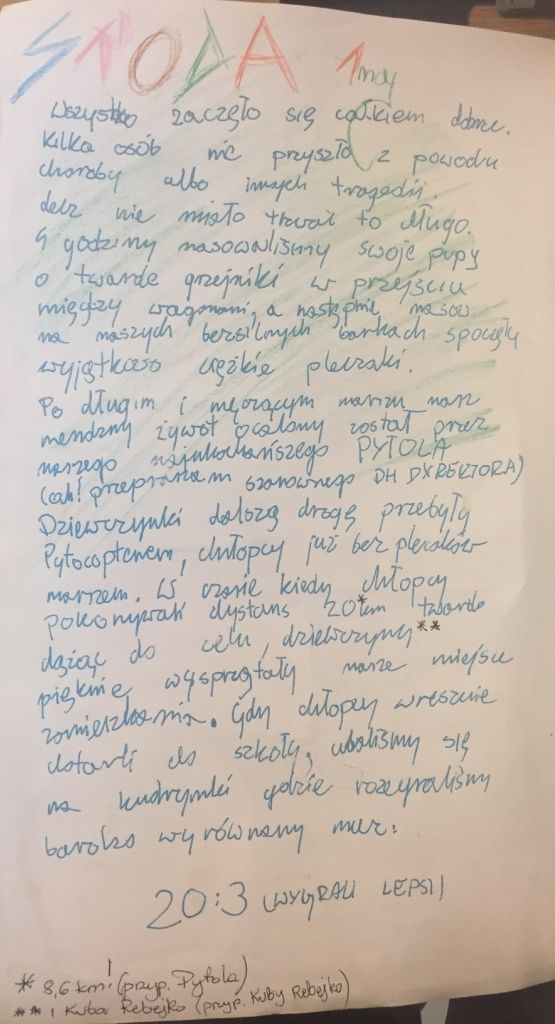 ŚRODA 1 maj
Wszystko zaczęło się całkiem dobrze.
Kilka osób nie przyszło z powodu
choroby albo innych tragedii.
Lecz nie miało trwać to długo.
5 godziny masowaliśmy swoje pupy
o twarde grzejniki w przejściu
między wagonami, a następnie
na naszych bezsilnych barkach spoczęły
wyjątkowo ciężkie plecaki.
Po długim i męczącym marszu nasz
żywot ocalony został przez
naszego najukochańszego PYTOLA
(ach! przepraszam szanownego DH DYREKTORA)
Dziewczynki dalszą drogę przebyły
Pytocopterem, chłopcy już bez plecaków
marszem. W czasie kiedy chłopcy
pokonywali dystans 20*km twardo
dążąc do celu, dziewczyny**
pięknie wysprzątały nasze miejsce
zamieszkania. Gdy chłopcy wreszcie
dotarli do szkoły, udaliśmy się
na gdzie rozegraliśmy
bardzo wyrównany mecz:
20:3 (WYGRALI LEPSI)
* 8,6 km! (przyp. Pytola)
** i Kuba Rebejko (przyp. Kuby Rebejko)